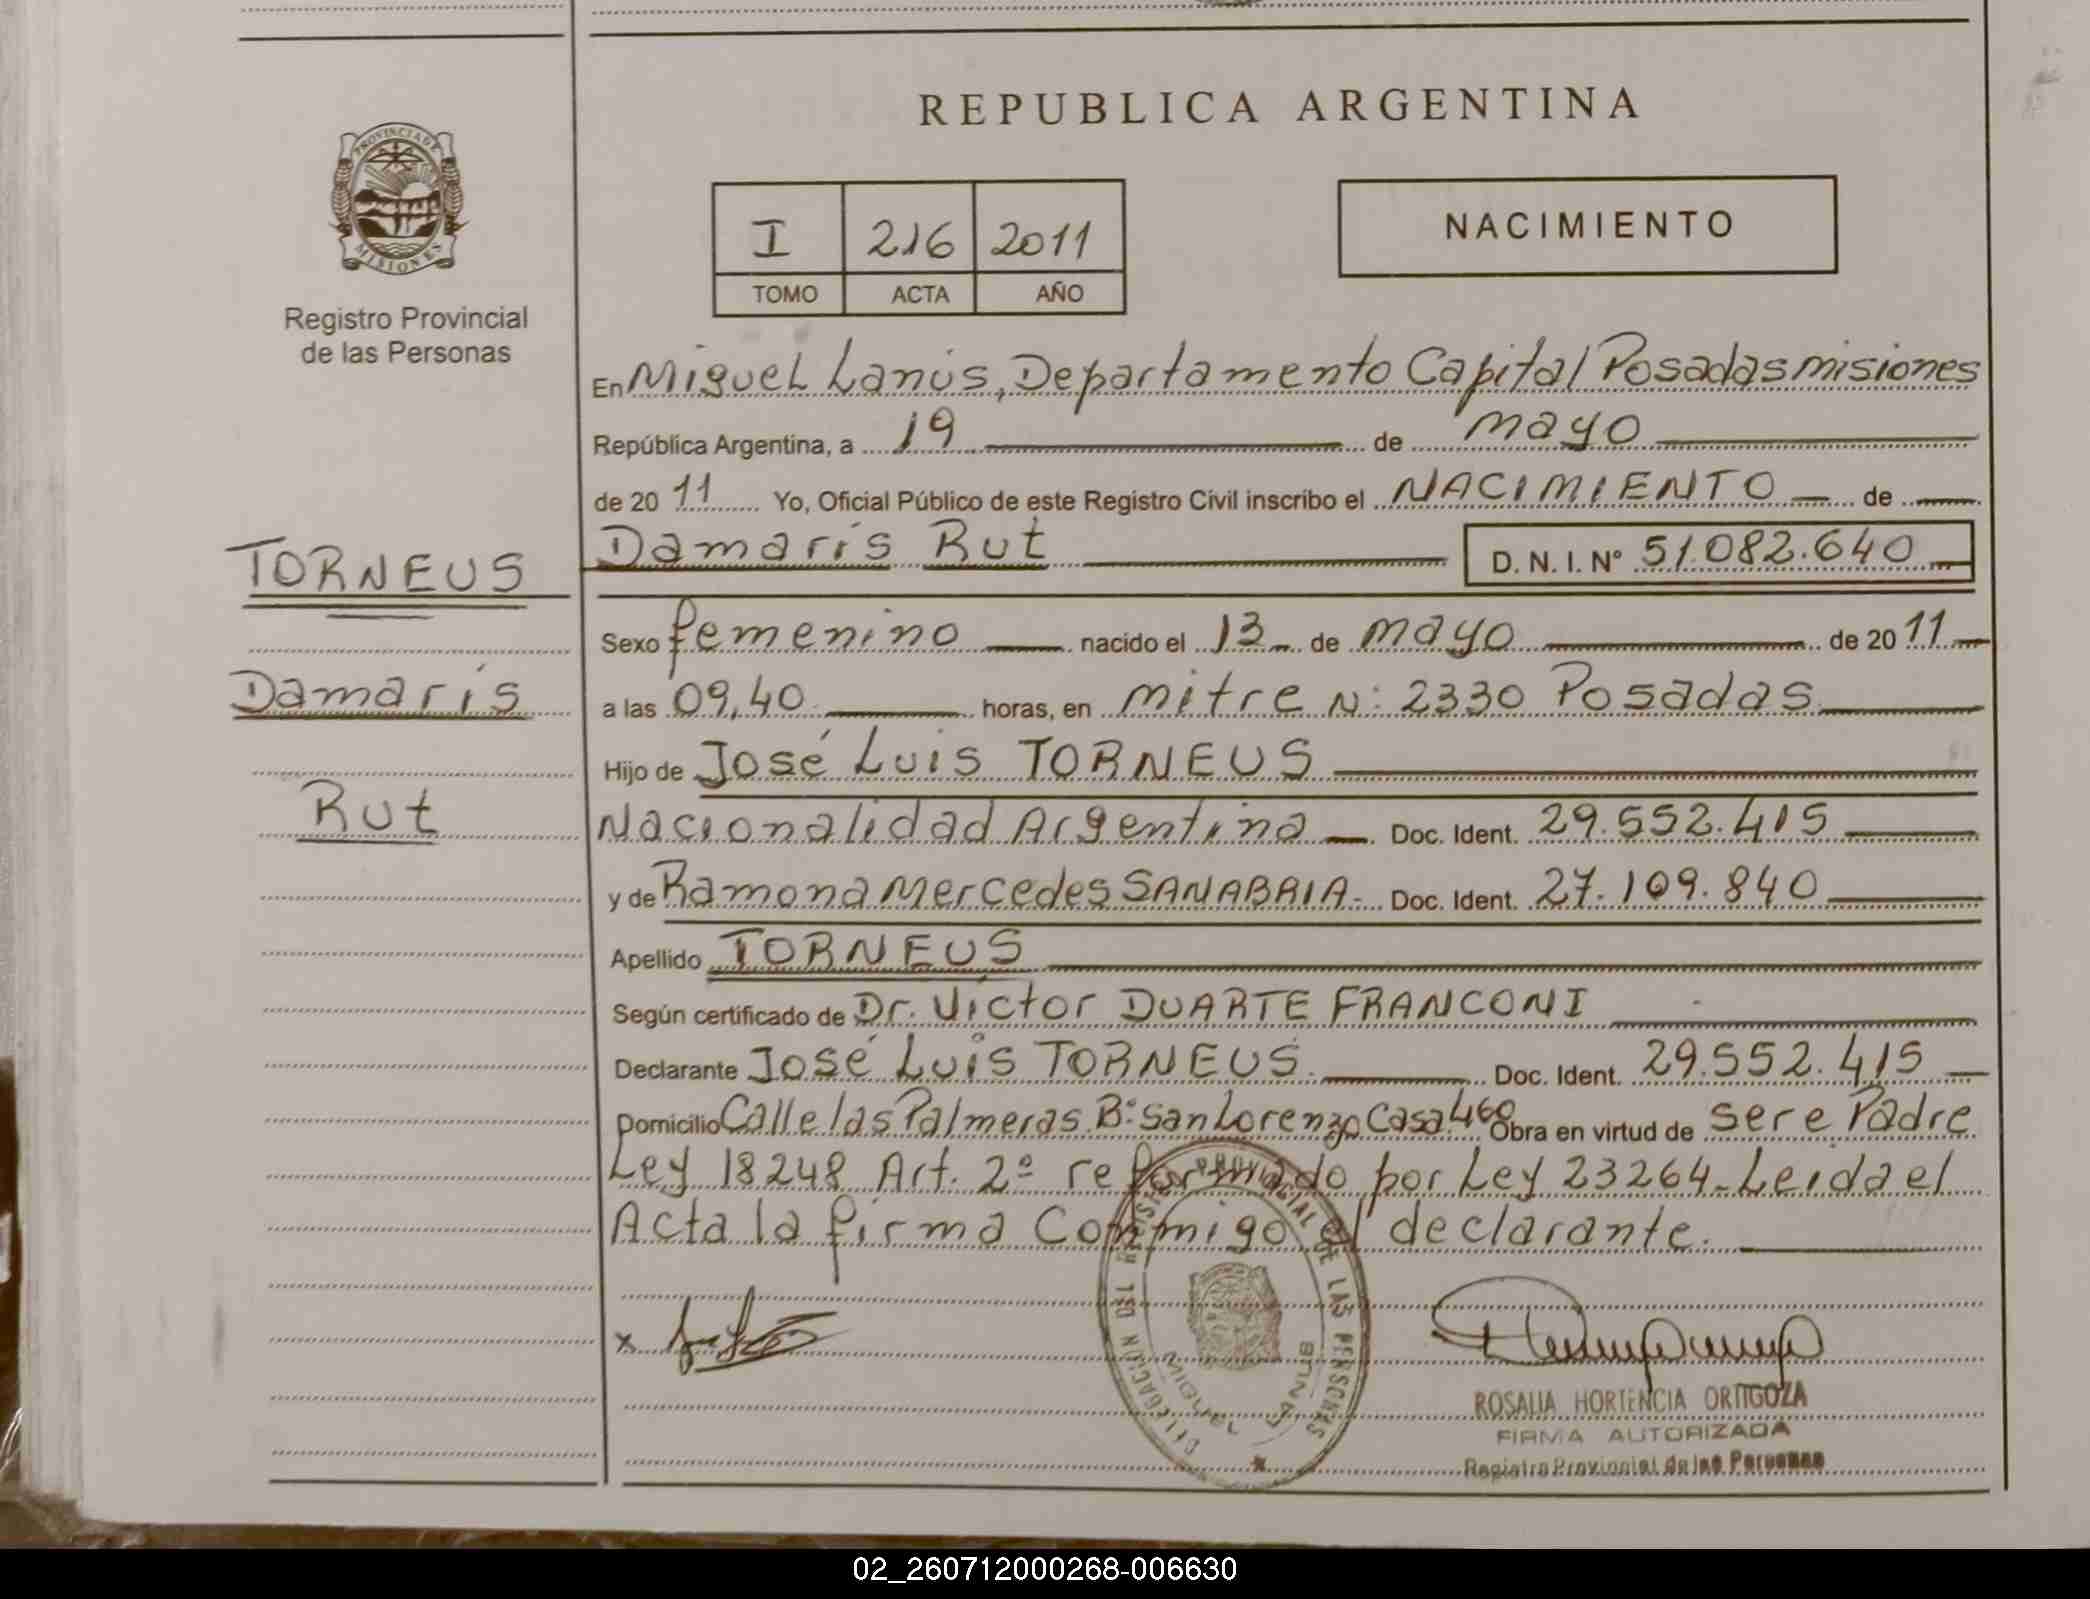 REPUBLICA ARGENTINA
PROVINCIA DE MISIONES
Registro Provincial
de las Personas
I 216 2011
TOMO ACTA AÑO
NACIMIENTO
En Miguel Lanús, Departamento Capital Posadas misiones
República Argentina, a 19 de mayo
de 20 11 Yo, Oficial Público de este Registro Civil inscribo el NACIMIENTO de
TORNEUS
Damaris
Rut
Damaris Rut D. N. I. Nº 51.082.640
Sexo femenino nacido el 13 de mayo de 20 11
a las 09,40 horas, en mitre N: 2330 Posadas
Hijo de José Luis TORNEUS
Nacionalidad Argentina Doc. Ident. 29.552.415
y de Ramona Mercedes SANABRIA Doc. Ident. 27.109.840
Apellido TORNEUS
Según certificado de Dr. Victor DUARTE FRANCONI
Declarante José Luis TORNEUS Doc. Ident. 29.552.415
Domicilio Calle las Palmeras B: San Lorenzo Casa 460 Obra en virtud de ser e Padre
Ley 18248 Art. 2º reformado por Ley 23264 Leida el
Acta la firma Conmigo el declarante.
DELEGACIÓN DEL REGISTRO PROVINCIAL DE LAS PERSONAS
MIGUEL LANUS
ROSALIA HORTENCIA ORTIGOZA
FIRMA AUTORIZADA
Registro Provincial de las Personas
02_260712000268-006630